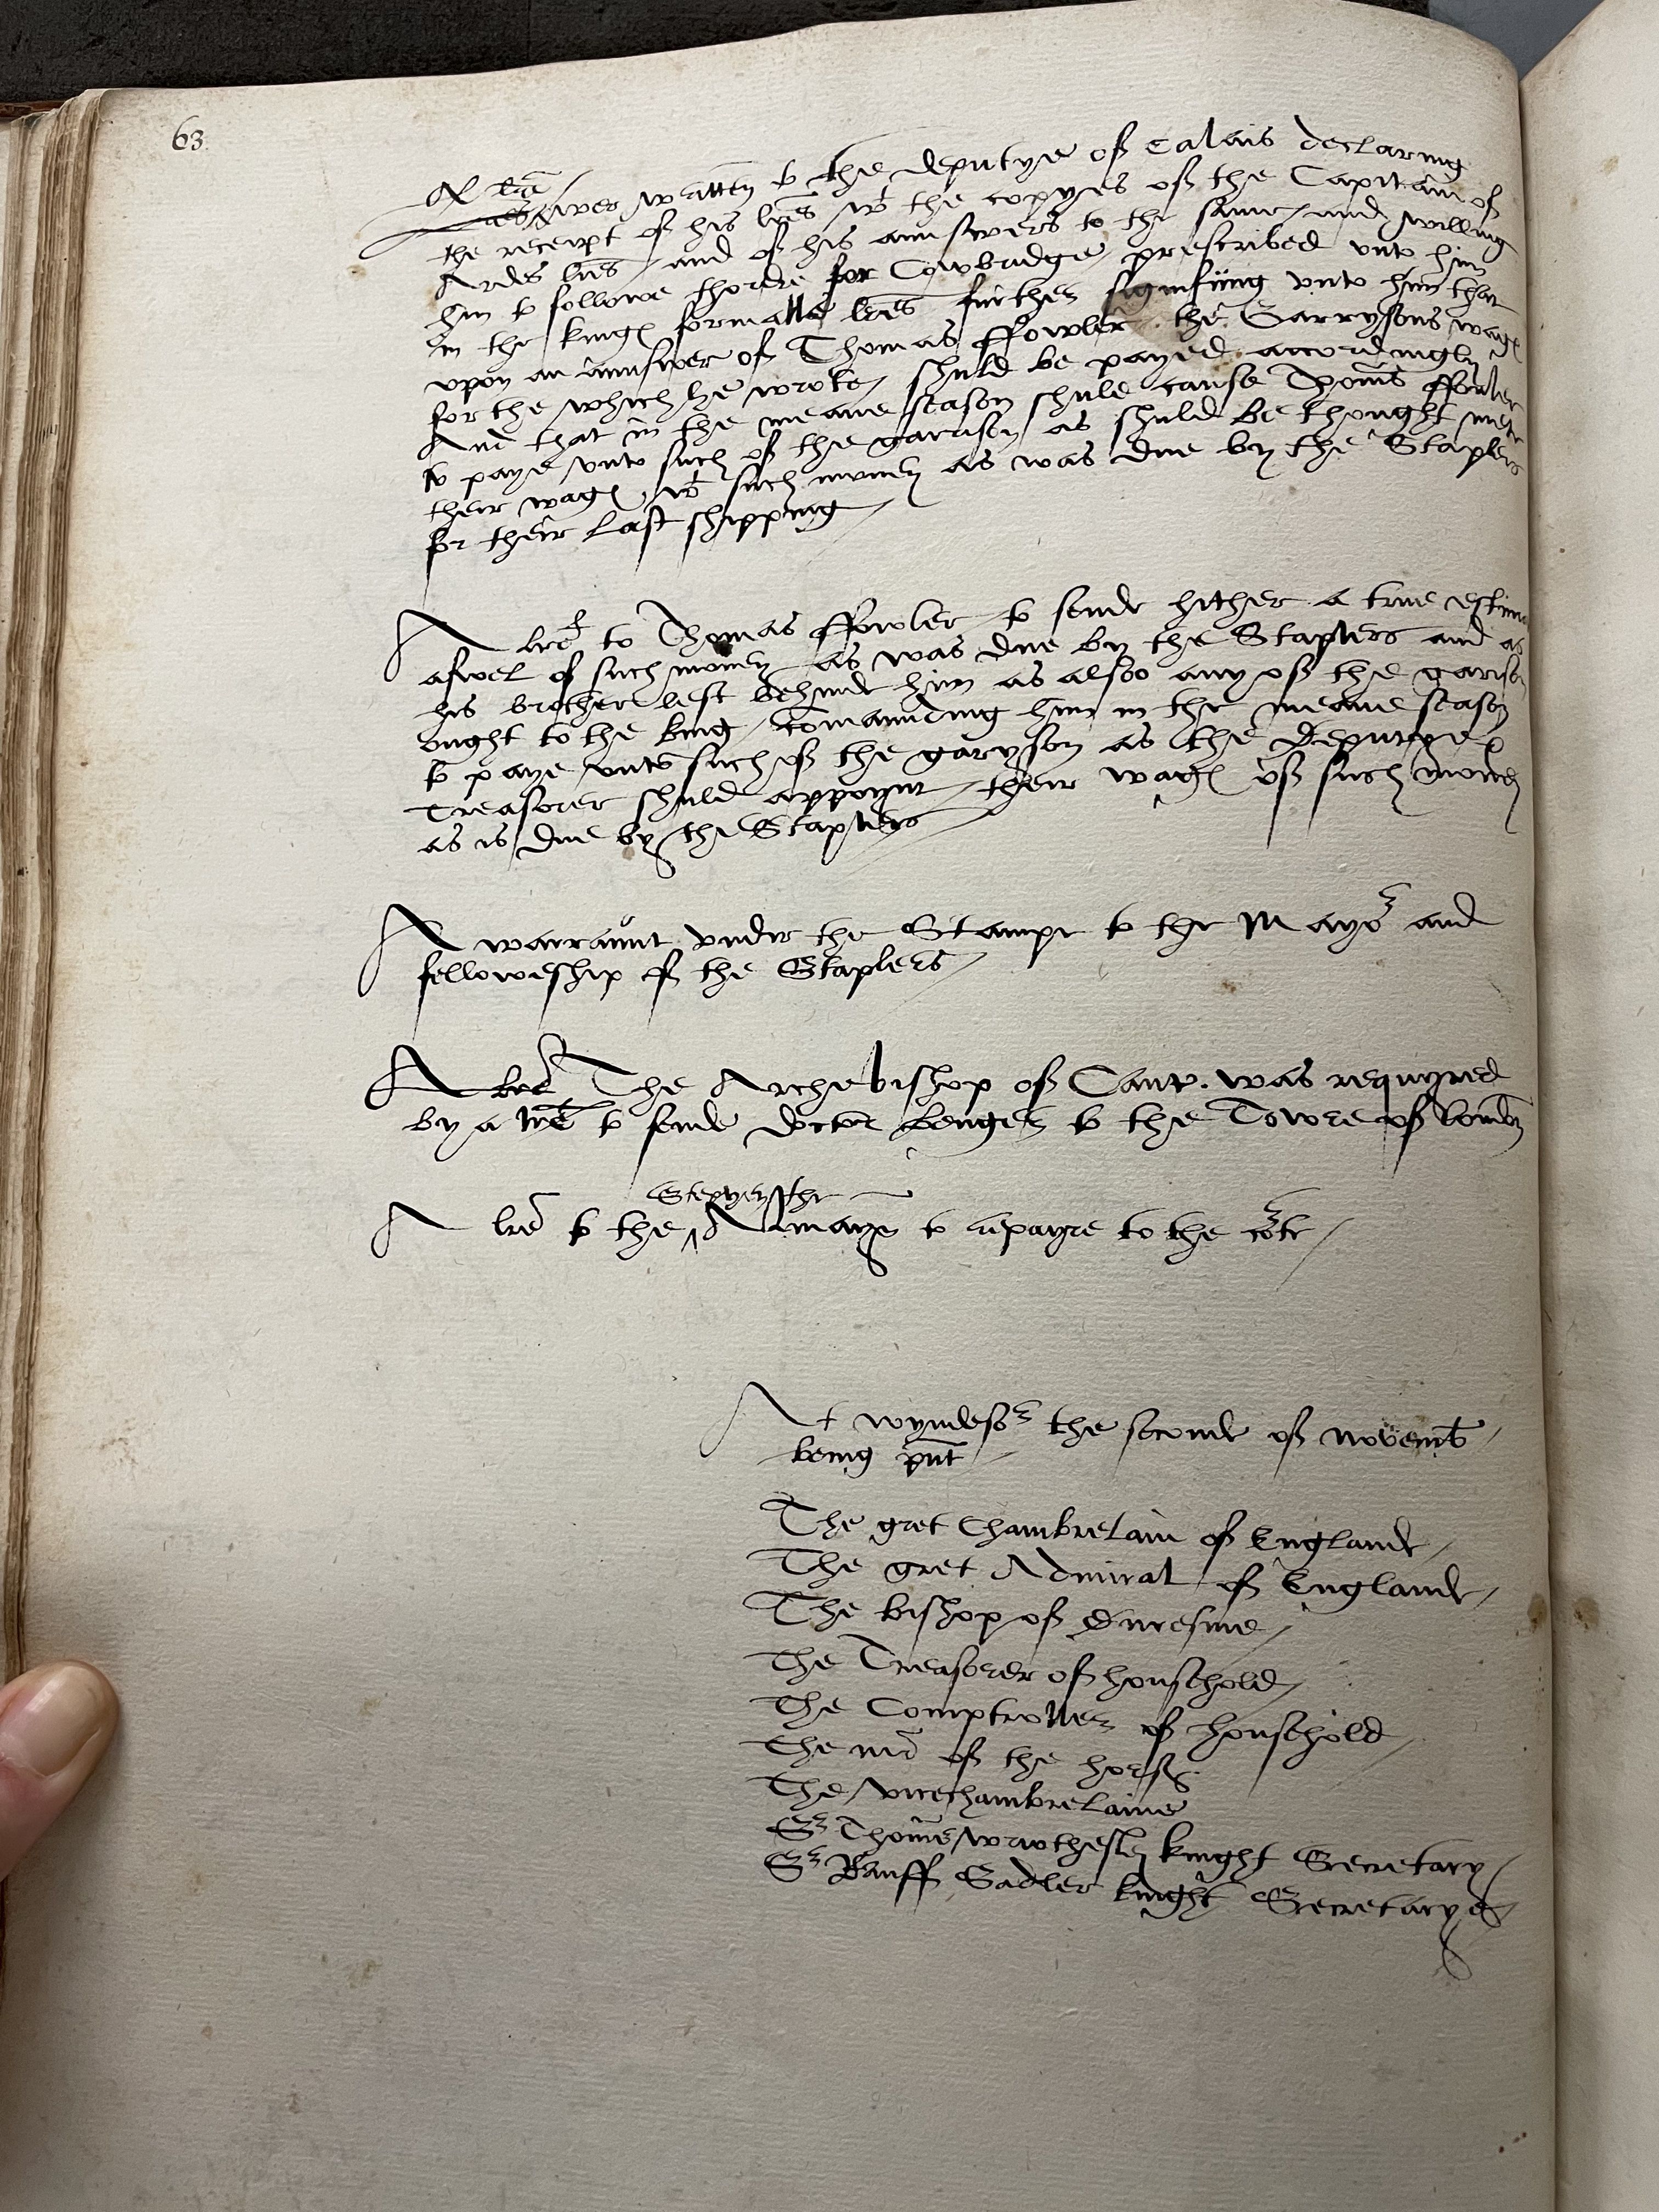 63
A lre
wer written to the deputye of Calais declaring
the receipt of his lres wt the copyes of the Capitain of
Ardes lres / and of his aunswers to the same / and willing
him to followe thordre for Cowbridge prescribed unto him
in the kinges formalle lres further signifiing unto him that
upon an aunswer of Thomas ffowler the Garrysons wages
for the which he wrote / shuld be payed accordingly
And that in the meane season shuld cause Thoms ffowler
to paye unto such of the garnison as shuld be thought mete
their wages, wt such money as was due by the Staplers
for their last shipping
A lre to Thomas ffowler to sende hither a true
aswel of such money as was due by the Staplers and as
his brother left behinde him as alsoo any of the garison
ought to the king / comaunding him in the meane season
to paye unto such of the garyson as the Deputye &
Treasorer shuld appoynt / their wages of such money
as is due by the Staplers
A warraunt under the Stampe to the Mayor and
felloweship of the Staplers
A lre The Archebishop of Cant. was requyred
by a lre to sende doctor Benger to the Towre of London
Stepyen the
A lre to the ^ Almayn to repayre to the corte /
At wyndesor the seconde of Novembr
being pnt
The gret Chambrelain of Englande
The gret Admiral of Englande
The bishop of Duresme
The Treasorer of houschold
The Comptroller of houschold
The mr of the horses
The vicechambrelaine
Sr Thoms wriothesley knight Secretary
Sr Rauff Sadler knight Secretaryes